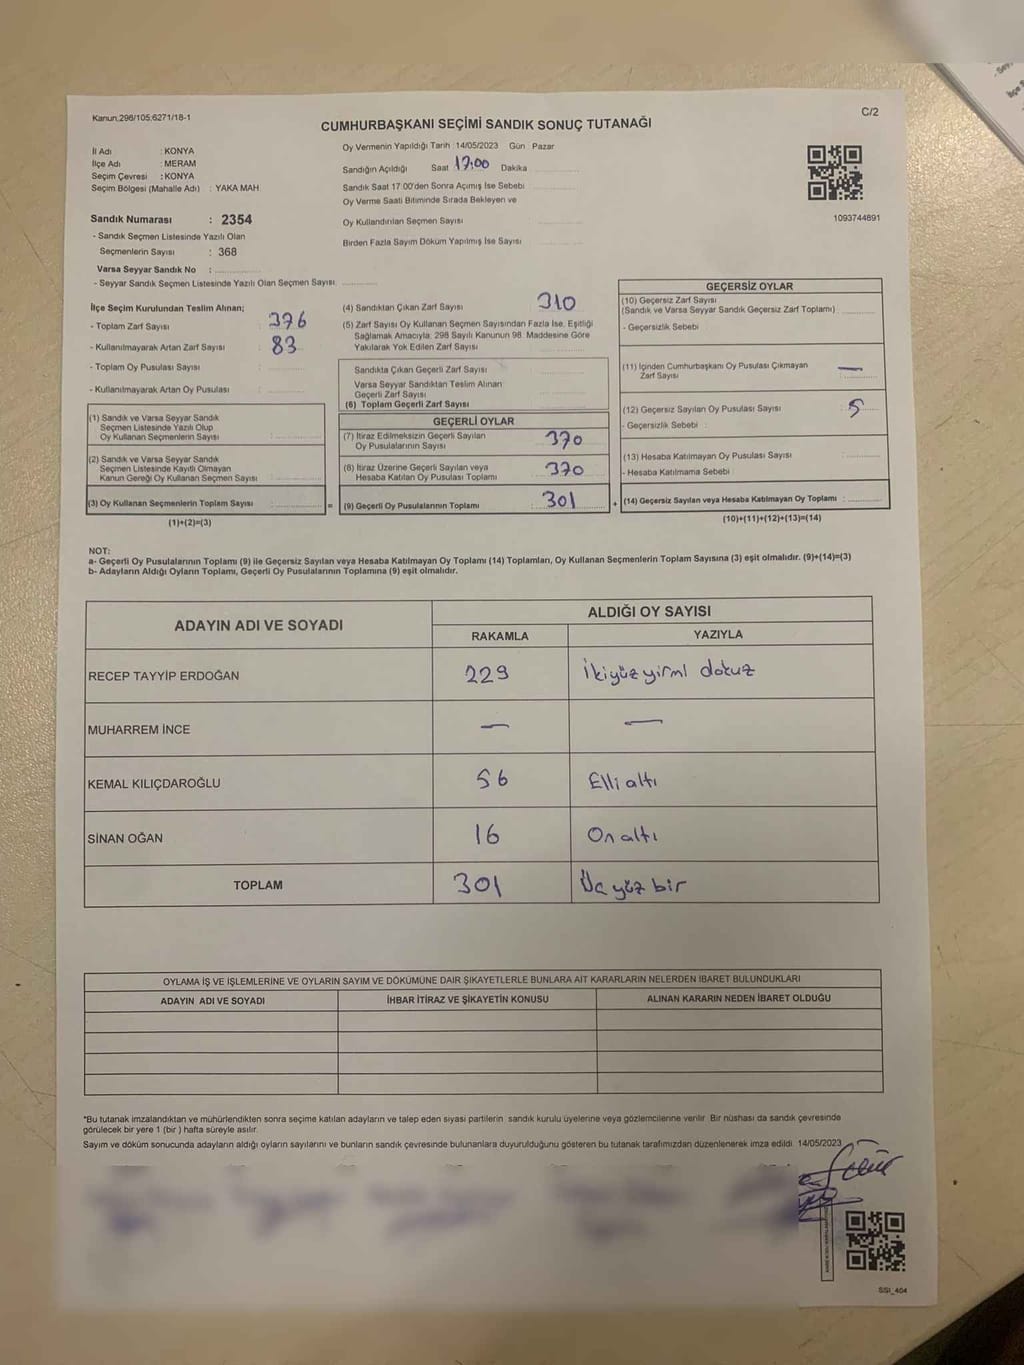 Kanun.298/105:6271/18-1
C/2
CUMHURBAŞKANI SEÇİMİ SANDIK SONUÇ TUTANAĞI
İl Adı : KONYA
İlçe Adı : MERAM
Seçim Çevresi : KONYA
Seçim Bölgesi (Mahalle Adı) : YAKA MAH
Sandık Numarası : 2354
- Sandık Seçmen Listesinde Yazılı Olan
Seçmenlerin Sayısı : 368
Varsa Seyyar Sandık No :
- Seyyar Sandık Seçmen Listesinde Yazılı Olan Seçmen Sayısı:
Oy Vermenin Yapıldığı Tarih 14/05/2023 Gün Pazar
Sandığın Açıldığı Saat 17:00 Dakika
Sandık Saat 17:00'den Sonra Açımış İse Sebebi
Oy Verme Saati Bitiminde Sırada Bekleyen ve
Oy Kullandırılan Seçmen Sayısı
Birden Fazla Sayım Döküm Yapılmış İse Sayısı
1093744891
İlçe Seçim Kurulundan Teslim Alınan;
- Toplam Zarf Sayısı : 376
- Kullanılmayarak Artan Zarf Sayısı : 83
- Toplam Oy Pusulası Sayısı :
- Kullanılmayarak Artan Oy Pusulası :
(1) Sandık ve Varsa Seyyar Sandık
Seçmen Listesinde Yazılı Olup
Oy Kullanan Seçmenlerin Sayısı :
(2) Sandık ve Varsa Seyyar Sandık
Seçmen Listesinde Kayıtlı Olmayan
Kanun Gereği Oy Kullanan Seçmen Sayısı :
(3) Oy Kullanan Seçmenlerin Toplam Sayısı : =
(1)+(2)=(3)
(4) Sandıktan Çıkan Zarf Sayısı 310
(5) Zarf Sayısı Oy Kullanan Seçmen Sayısından Fazla İse, Eşitliği
Sağlamak Amacıyla, 298 Sayılı Kanunun 98. Maddesine Göre
Yakılarak Yok Edilen Zarf Sayısı
Sandıkta Çıkan Geçerli Zarf Sayısı
Varsa Seyyar Sandıktan Teslim Alınan
Geçerli Zarf Sayısı
(6) Toplam Geçerli Zarf Sayısı
GEÇERLİ OYLAR
(7) İtiraz Edilmeksizin Geçerli Sayılan
Oy Pusulalarının Sayısı 370
(8) İtiraz Üzerine Geçerli Sayılan veya
Hesaba Katılan Oy Pusulası Toplamı 370
(9) Geçerli Oy Pusulalarının Toplamı 301 +
GEÇERSİZ OYLAR
(10) Geçersiz Zarf Sayısı
(Sandık ve Varsa Seyyar Sandık Geçersiz Zarf Toplamı)
- Geçersizlik Sebebi
(11) İçinden Cumhurbaşkanı Oy Pusulası Çıkmayan
Zarf Sayısı : —
(12) Geçersiz Sayılan Oy Pusulası Sayısı : 5
- Geçersizlik Sebebi :
(13) Hesaba Katılmayan Oy Pusulası Sayısı
- Hesaba Katılmama Sebebi
(14) Geçersiz Sayılan veya Hesaba Katılmayan Oy Toplamı :
(10)+(11)+(12)+(13)=(14)
NOT:
a- Geçerli Oy Pusulalarının Toplamı (9) ile Geçersiz Sayılan veya Hesaba Katılmayan Oy Toplamı (14) Toplamları, Oy Kullanan Seçmenlerin Toplam Sayısına (3) eşit olmalıdır. (9)+(14)=(3)
b- Adayların Aldığı Oyların Toplamı, Geçerli Oy Pusulalarının Toplamına (9) eşit olmalıdır.
ADAYIN ADI VE SOYADI
ALDIĞI OY SAYISI
RAKAMLA YAZIYLA
RECEP TAYYİP ERDOĞAN 229 İkiyüzyirmi dokuz
MUHARREM İNCE — —
KEMAL KILIÇDAROĞLU 56 Elli altı
SİNAN OĞAN 16 On altı
TOPLAM 301 Üç yüz bir
OYLAMA İŞ VE İŞLEMLERİNE VE OYLARIN SAYIM VE DÖKÜMÜNE DAİR ŞİKAYETLERLE BUNLARA AİT KARARLARIN NELERDEN İBARET BULUNDUKLARI
ADAYIN ADI VE SOYADI İHBAR İTİRAZ VE ŞİKAYETİN KONUSU ALINAN KARARIN NEDEN İBARET OLDUĞU
*Bu tutanak imzalandıktan ve mühürlendikten sonra seçime katılan adayların ve talep eden siyasi partilerin sandık kurulu üyelerine veya gözlemcilerine verilir. Bir nüshası da sandık çevresinde
görülecek bir yere 1 (bir) hafta süreyle asılır.
Sayım ve döküm sonucunda adayların aldığı oyların sayılarını ve bunların sandık çevresinde bulunanlara duyurulduğunu gösteren bu tutanak tarafımızdan düzenlenerek imza edildi. 14/05/2023
SSI_404